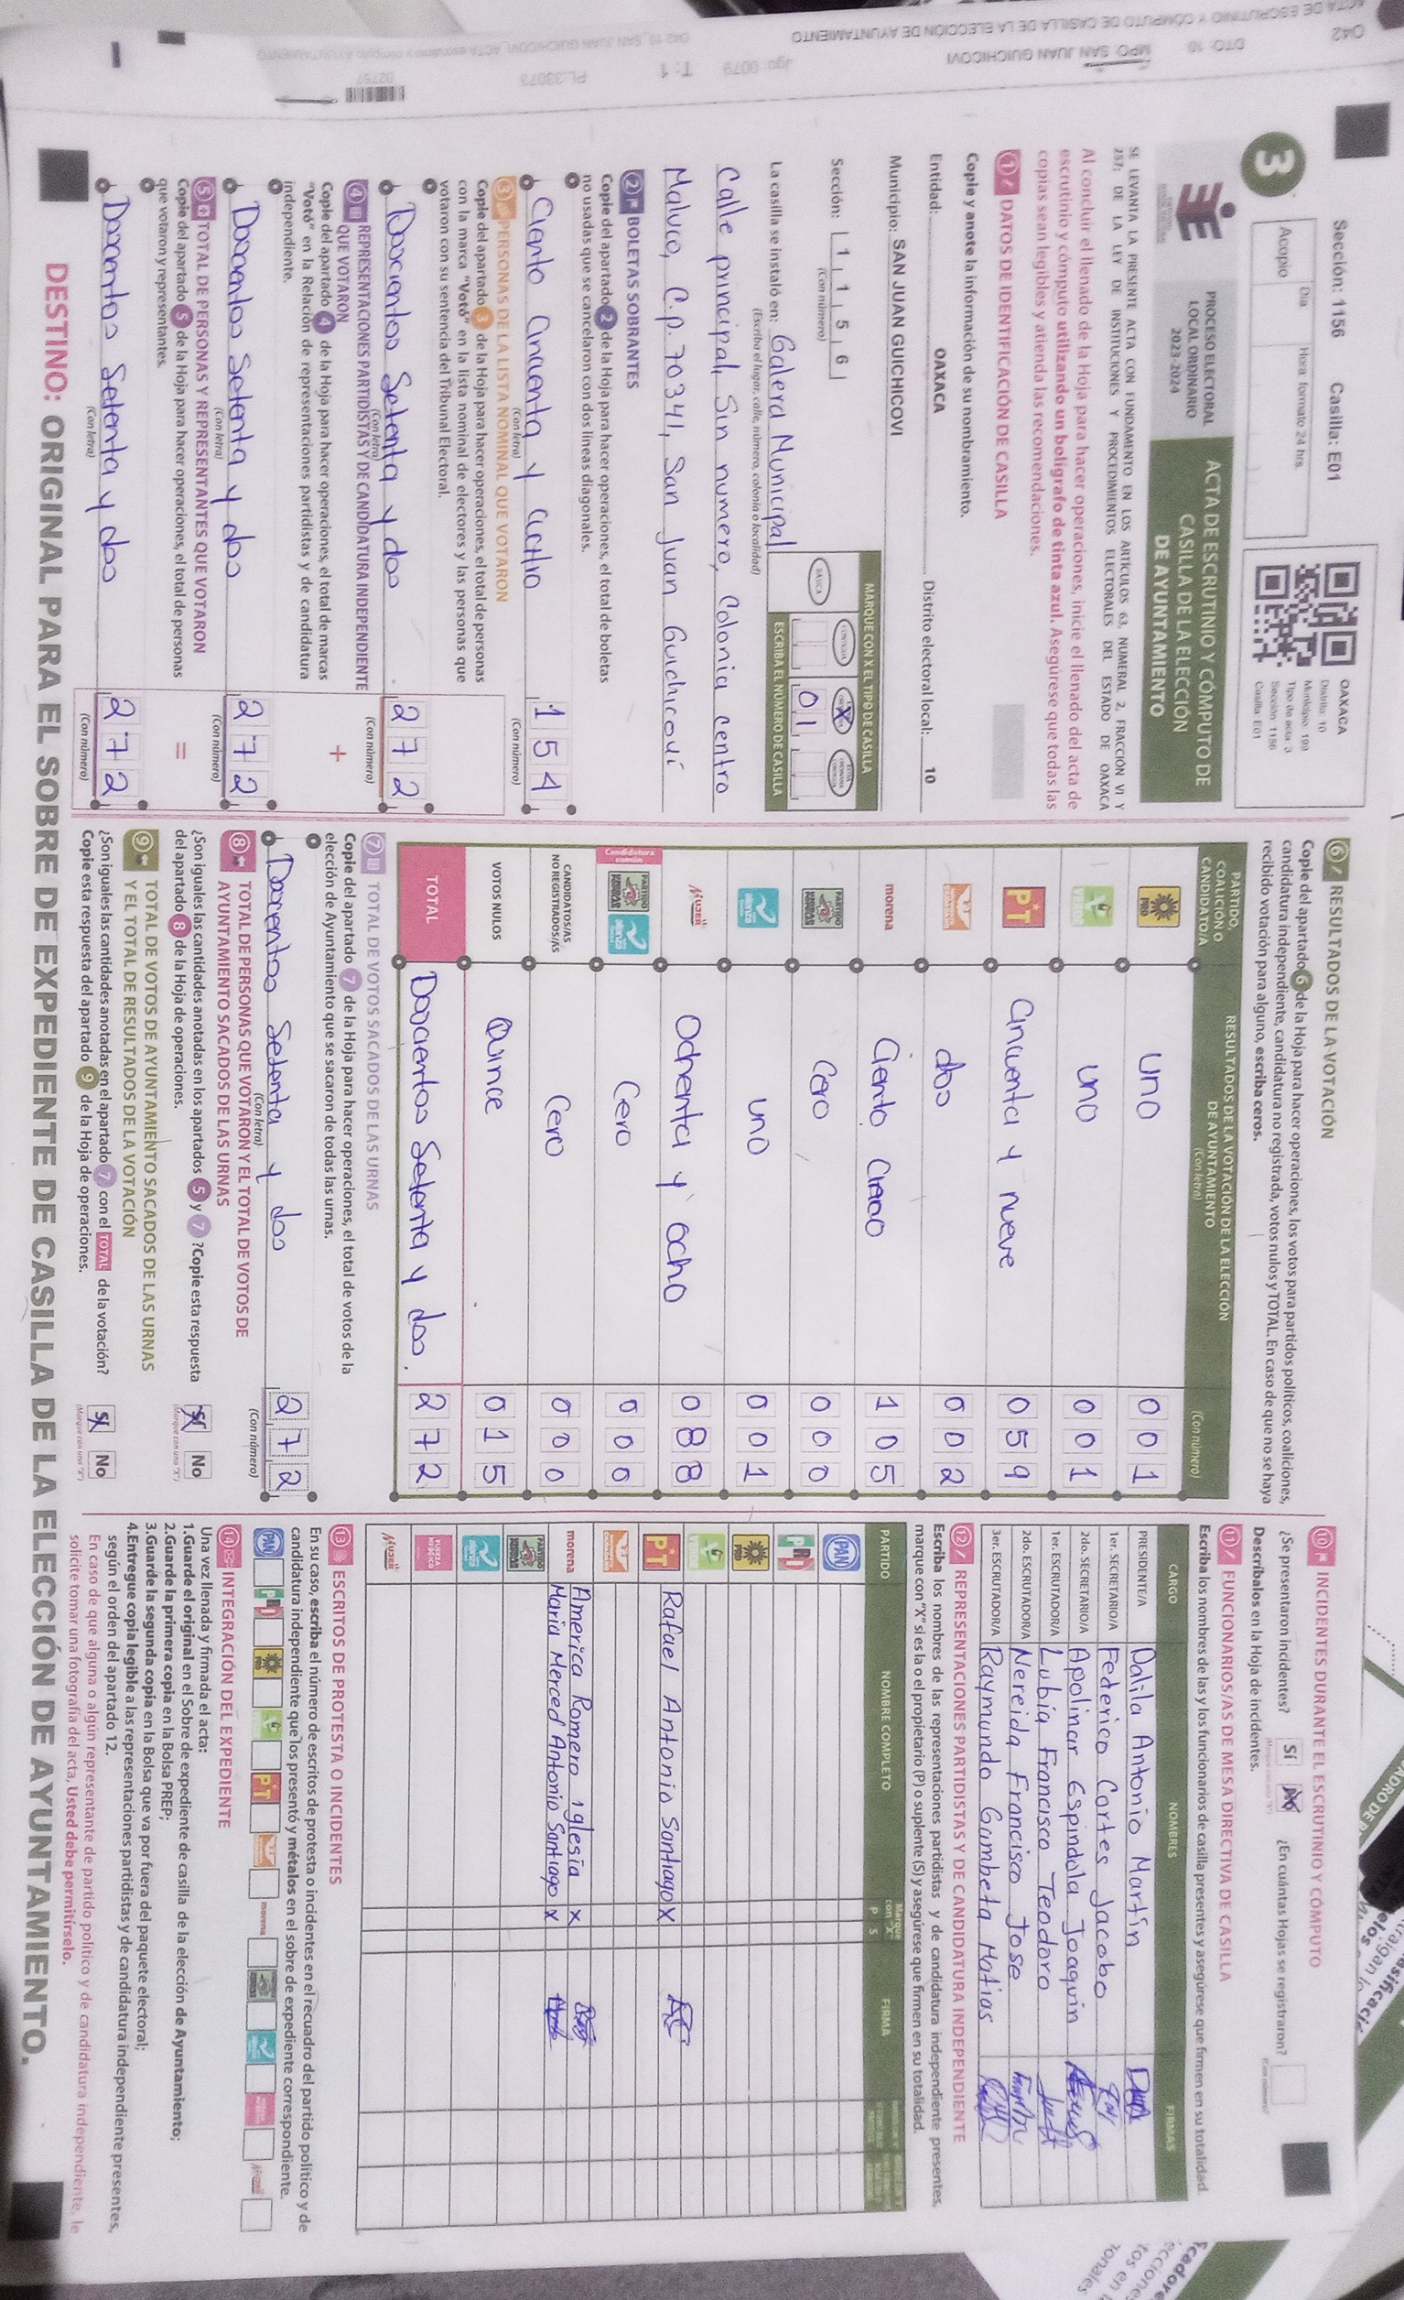 Sección: 1156 Casilla: E01
3
Acopio
Día
Hora formato 24 hrs.
OAXACA
Distrito: 10
Tipo de acta: 3
Sección: 1156
Casilla: E01
PROCESO ELECTORAL
LOCAL ORDINARIO
2023-2024
ACTA DE ESCRUTINIO Y CÓMPUTO DE
CASILLA DE LA ELECCIÓN
DE AYUNTAMIENTO
SE LEVANTA LA PRESENTE ACTA CON FUNDAMENTO EN LOS ARTÍCULOS 63, NUMERAL 2, FRACCIÓN VI Y
257; DE LA LEY DE INSTITUCIONES Y PROCEDIMIENTOS ELECTORALES DEL ESTADO DE OAXACA
Al concluir el llenado de la Hoja para hacer operaciones, inicie el llenado del acta de
escrutinio y cómputo utilizando un bolígrafo de tinta azul. Asegúrese que todas las
copias sean legibles y atienda las recomendaciones.
1 DATOS DE IDENTIFICACIÓN DE CASILLA
Copie y anote la información de su nombramiento.
Entidad: OAXACA Distrito electoral local: 10
Municipio: SAN JUAN GUICHICOVI
Sección: 1 1 5 6
(Con número)
MARQUE CON X EL TIPO DE CASILLA
BÁSICA CONTIGUA X
01
ESCRIBA EL NÚMERO DE CASILLA
La casilla se instaló en: Galera Municipal
(Escriba el lugar, calle, número, colonia o localidad)
Calle principal, Sin numero, Colonia centro
Maluco, C.p. 70341, San Juan Guichicovi
2 BOLETAS SOBRANTES
Copie del apartado 2 de la Hoja para hacer operaciones, el total de boletas
no usadas que se cancelaron con dos líneas diagonales.
Ciento Cincuenta y cuatro 154
(Con letra) (Con número)
3 PERSONAS DE LA LISTA NOMINAL QUE VOTARON
Copie del apartado 3 de la Hoja para hacer operaciones, el total de personas
con la marca "Votó" en la lista nominal de electores y las personas que
votaron con su sentencia del Tribunal Electoral.
Doscientos Setenta y dos 272
(Con letra) (Con número)
4 REPRESENTACIONES PARTIDISTAS Y DE CANDIDATURA INDEPENDIENTE
QUE VOTARON
Copie del apartado 4 de la Hoja para hacer operaciones, el total de marcas
"Votó" en la Relación de representaciones partidistas y de candidatura
independiente.
+
Doscientos Setenta y dos 272
(Con letra) (Con número)
5 TOTAL DE PERSONAS Y REPRESENTANTES QUE VOTARON
Copie del apartado 5 de la Hoja para hacer operaciones, el total de personas
que votaron y representantes.
=
Doscientos Setenta y dos 272
(Con letra) (Con número)
6 RESULTADOS DE LA VOTACIÓN
Copie del apartado 6 de la Hoja para hacer operaciones, los votos para partidos políticos, coaliciones,
candidatura independiente, candidatura no registrada, votos nulos y TOTAL. En caso de que no se haya
recibido votación para alguno, escriba ceros.
PARTIDO, COALICIÓN O CANDIDATO/A
RESULTADOS DE LA VOTACIÓN DE LA ELECCIÓN DE AYUNTAMIENTO
(Con letra) (Con número)
PRD uno 001
uno 001
PT cincuenta y nueve 059
dos 002
morena Ciento Cinco 105
Cero 000
alianza uno 001
MUJER Ochenta y ocho 088
Candidatura común Cero 000
CANDIDATOS/AS NO REGISTRADOS/AS Cero 000
VOTOS NULOS Quince 015
TOTAL Doscientos Setenta y dos. 272
7 TOTAL DE VOTOS SACADOS DE LAS URNAS
Copie del apartado 7 de la Hoja para hacer operaciones, el total de votos de la
elección de Ayuntamiento que se sacaron de todas las urnas.
Doscientos Setenta y dos 272
(Con letra) (Con número)
8 TOTAL DE PERSONAS QUE VOTARON Y EL TOTAL DE VOTOS DE
AYUNTAMIENTO SACADOS DE LAS URNAS
¿Son iguales las cantidades anotadas en los apartados 5 y 7 ? Copie esta respuesta
del apartado 8 de la Hoja de operaciones.
Sí No
9 TOTAL DE VOTOS DE AYUNTAMIENTO SACADOS DE LAS URNAS
Y EL TOTAL DE RESULTADOS DE LA VOTACIÓN
¿Son iguales las cantidades anotadas en el apartado 7 con el TOTAL de la votación?
Copie esta respuesta del apartado 9 de la Hoja de operaciones.
Sí No
10 INCIDENTES DURANTE EL ESCRUTINIO Y CÓMPUTO
¿Se presentaron incidentes? Sí No ¿En cuántas Hojas se registraron?
Descríbalos en la Hoja de incidentes.
11 FUNCIONARIOS/AS DE MESA DIRECTIVA DE CASILLA
Escriba los nombres de las y los funcionarios de casilla presentes y asegúrese que firmen en su totalidad.
CARGO NOMBRES FIRMAS
PRESIDENTE/A Dalila Antonio Martín
1er. SECRETARIO/A Federico Cortes Jacobo
2do. SECRETARIO/A Apolinar Espindola Joaquin
1er. ESCRUTADOR/A Lubia Francisco Teodoro
2do. ESCRUTADOR/A Nereida Francisco Jose
3er. ESCRUTADOR/A Raymundo Gambeta Matias
12 REPRESENTACIONES PARTIDISTAS Y DE CANDIDATURA INDEPENDIENTE
Escriba los nombres de las representaciones partidistas y de candidatura independiente presentes,
marque con "X" si es la o el propietario (P) o suplente (S) y asegúrese que firmen en su totalidad.
PARTIDO NOMBRE COMPLETO Marque con "X" P S FIRMA
PAN
PRI
PRD
PT Rafael Antonio Santiago X
morena America Romero iglesia X
Maria Merced Antonio Santiago X
MUJER
13 ESCRITOS DE PROTESTA O INCIDENTES
En su caso, escriba el número de escritos de protesta o incidentes en el recuadro del partido político y de
candidatura independiente que los presentó y métalos en el sobre de expediente correspondiente.
14 INTEGRACIÓN DEL EXPEDIENTE
Una vez llenada y firmada el acta:
1.Guarde el original en el Sobre de expediente de casilla de la elección de Ayuntamiento;
2.Guarde la primera copia en la Bolsa PREP;
3.Guarde la segunda copia en la Bolsa que va por fuera del paquete electoral;
4.Entregue copia legible a las representaciones partidistas y de candidatura independiente presentes,
según el orden del apartado 12.
En caso de que alguna o algún representante de partido político y de candidatura independiente, le
solicite tomar una fotografía del acta, Usted debe permitírselo.
DESTINO: ORIGINAL PARA EL SOBRE DE EXPEDIENTE DE CASILLA DE LA ELECCIÓN DE AYUNTAMIENTO.
042 DTO. 10 MPO. SAN JUAN GUICHICOVI
ACTA DE ESCRUTINIO Y CÓMPUTO DE CASILLA DE LA ELECCIÓN DE AYUNTAMIENTO